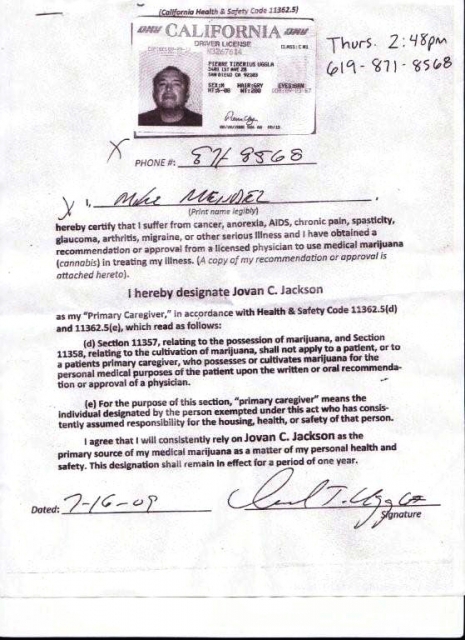 (California Health & Safety Code 11362.5)
CALIFORNIA
DRIVER LICENSE
PIERRE TIBERIUS UGGLA
SAN DIEGO CA
Thurs. 2:48pm
619-871-8568
X
PHONE #: 871 8568
X I, Mike MENDEZ
(Print name legibly)
hereby certify that I suffer from cancer, anorexia, AIDS, chronic pain, spasticity,
glaucoma, arthritis, migraine, or other serious illness and I have obtained a
recommendation or approval from a licensed physician to use medical marijuana
(cannabis) in treating my illness. (A copy of my recommendation or approval is
attached hereto).
I hereby designate Jovan C. Jackson
as my "Primary Caregiver," in accordance with Health & Safety Code 11362.5(d)
and 11362.5(e), which read as follows:
(d) Section 11357, relating to the possession of marijuana, and Section
11358, relating to the cultivation of marijuana, shall not apply to a patient, or to
a patients primary caregiver, who possesses or cultivates marijuana for the
personal medical purposes of the patient upon the written or oral recommenda-
tion or approval of a physician.
(e) For the purpose of this section, "primary caregiver" means the
individual designated by the person exempted under this act who has consis-
tently assumed responsibility for the housing, health, or safety of that person.
I agree that I will consistently rely on Jovan C. Jackson as the
primary source of my medical marijuana as a matter of my personal health and
safety. This designation shall remain in effect for a period of one year.
Dated: 7-16-09
Signature